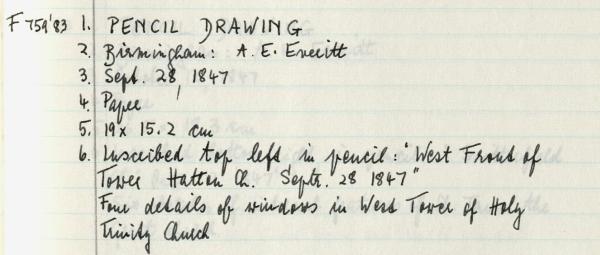 F 759'83 1. PENCIL DRAWING
2. Birmingham: A. E. Everitt
3. Sept. 28, 1847
4. Paper
5. 19 x 15.2 cm
6. Inscribed top left in pencil: "West Front of
Tower Hatton Ch. Septr. 28 1847"
Four details of windows in West Tower of Holy
Trinity Church